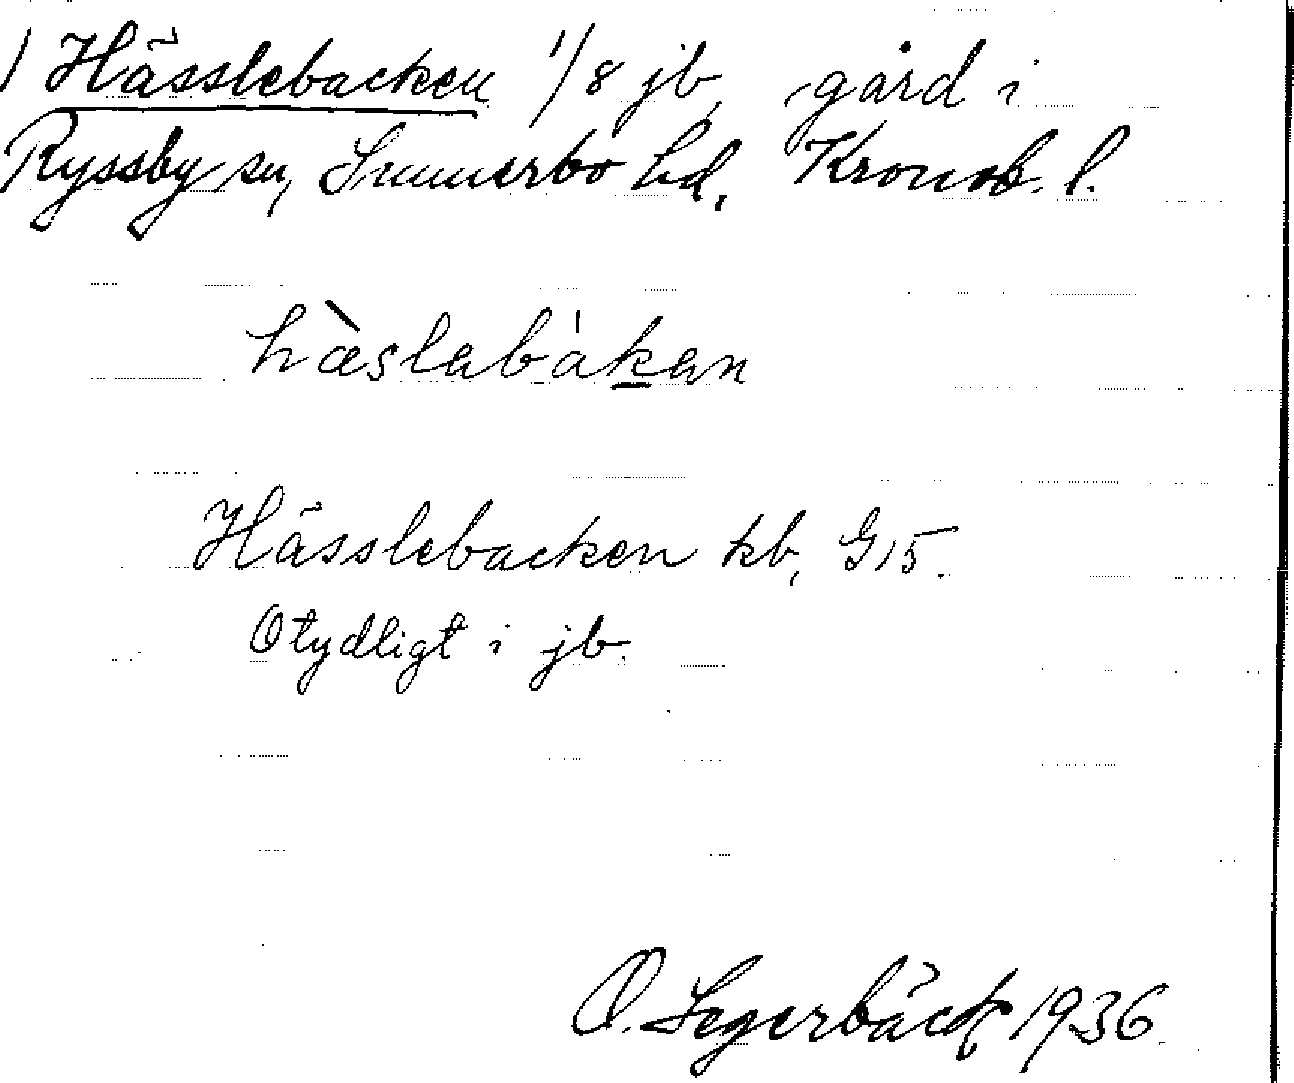 1 Hässlebacken 1/8 jb, gård i
Ryssby sn, Sunnerbo hd, Kronob. l.
hæ̀slabàkan
Hässlebacken kb, G15.
Otydligt i jb.
O. Segerbäck 1936